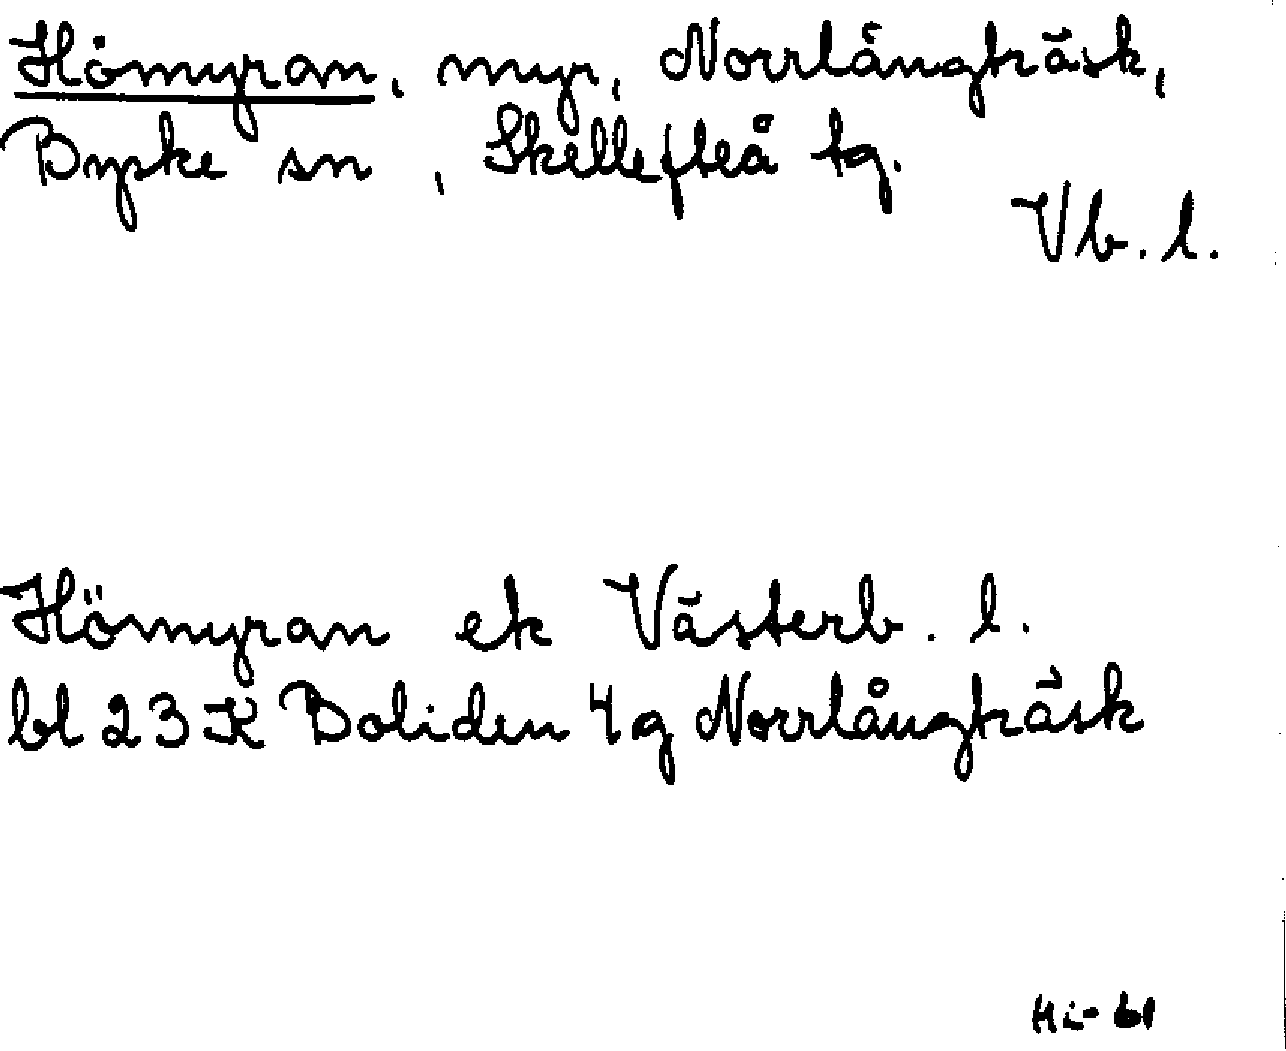 Hömyran, myr, Norrlångträsk,
Byske sn, Skellefteå tg.
Vb. l.
Hömyran ek Västerb. l.
bl 23 K Boliden 4g Norrlångträsk